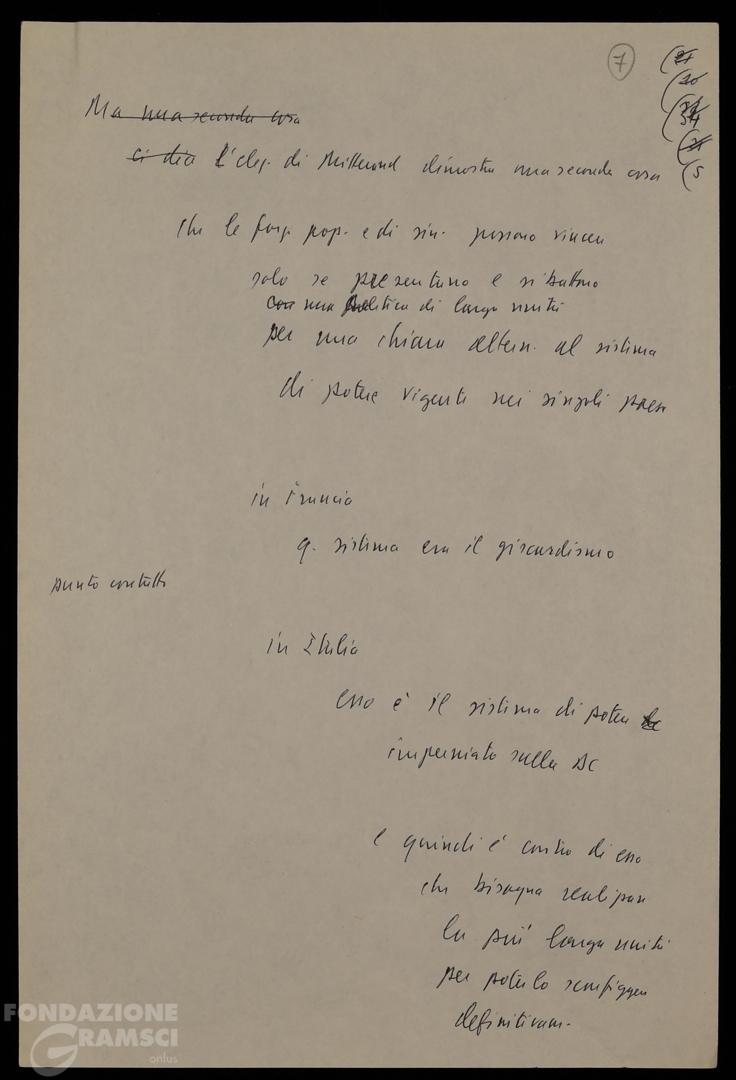 7
Ma una seconda cosa
ci dia L'elez. di Mitterand dimostra una seconda cosa
5
Che le forze pop. e di sin. possono vincere
solo se presentano e si battono
con una politica di larga unità
per una chiara altern. al sistema
di potere vigente nei singoli paesi
in Francia
q. sistema era il giscardismo
punto contatto
in Italia
esso è il sistema di potere
imperniato sulla DC
e quindi è contro di esso
che bisogna realizzare
la più larga unità
per poterlo sconfiggere
definitivam.
FONDAZIONE
GRAMSCI
onlus